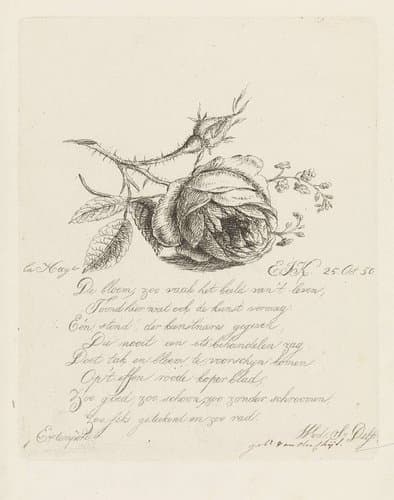 la Haye
EJK 25 Oct. 50
De bloem, zoo vaak het beeld van 't leven,
Toond hier wat ook de kunst vermag
Eén stond, der kunstnares gegeven,
Die nooit een ets behandelen zag,
Doet tak en bloem te voorschijn komen
Op't effen roode koper blad,
Zoo glad, zoo schoon, zoo zonder schroomen
Zoo fiks geteekend en zoo rad.
Extempore
Wed. S. Delf
geb.